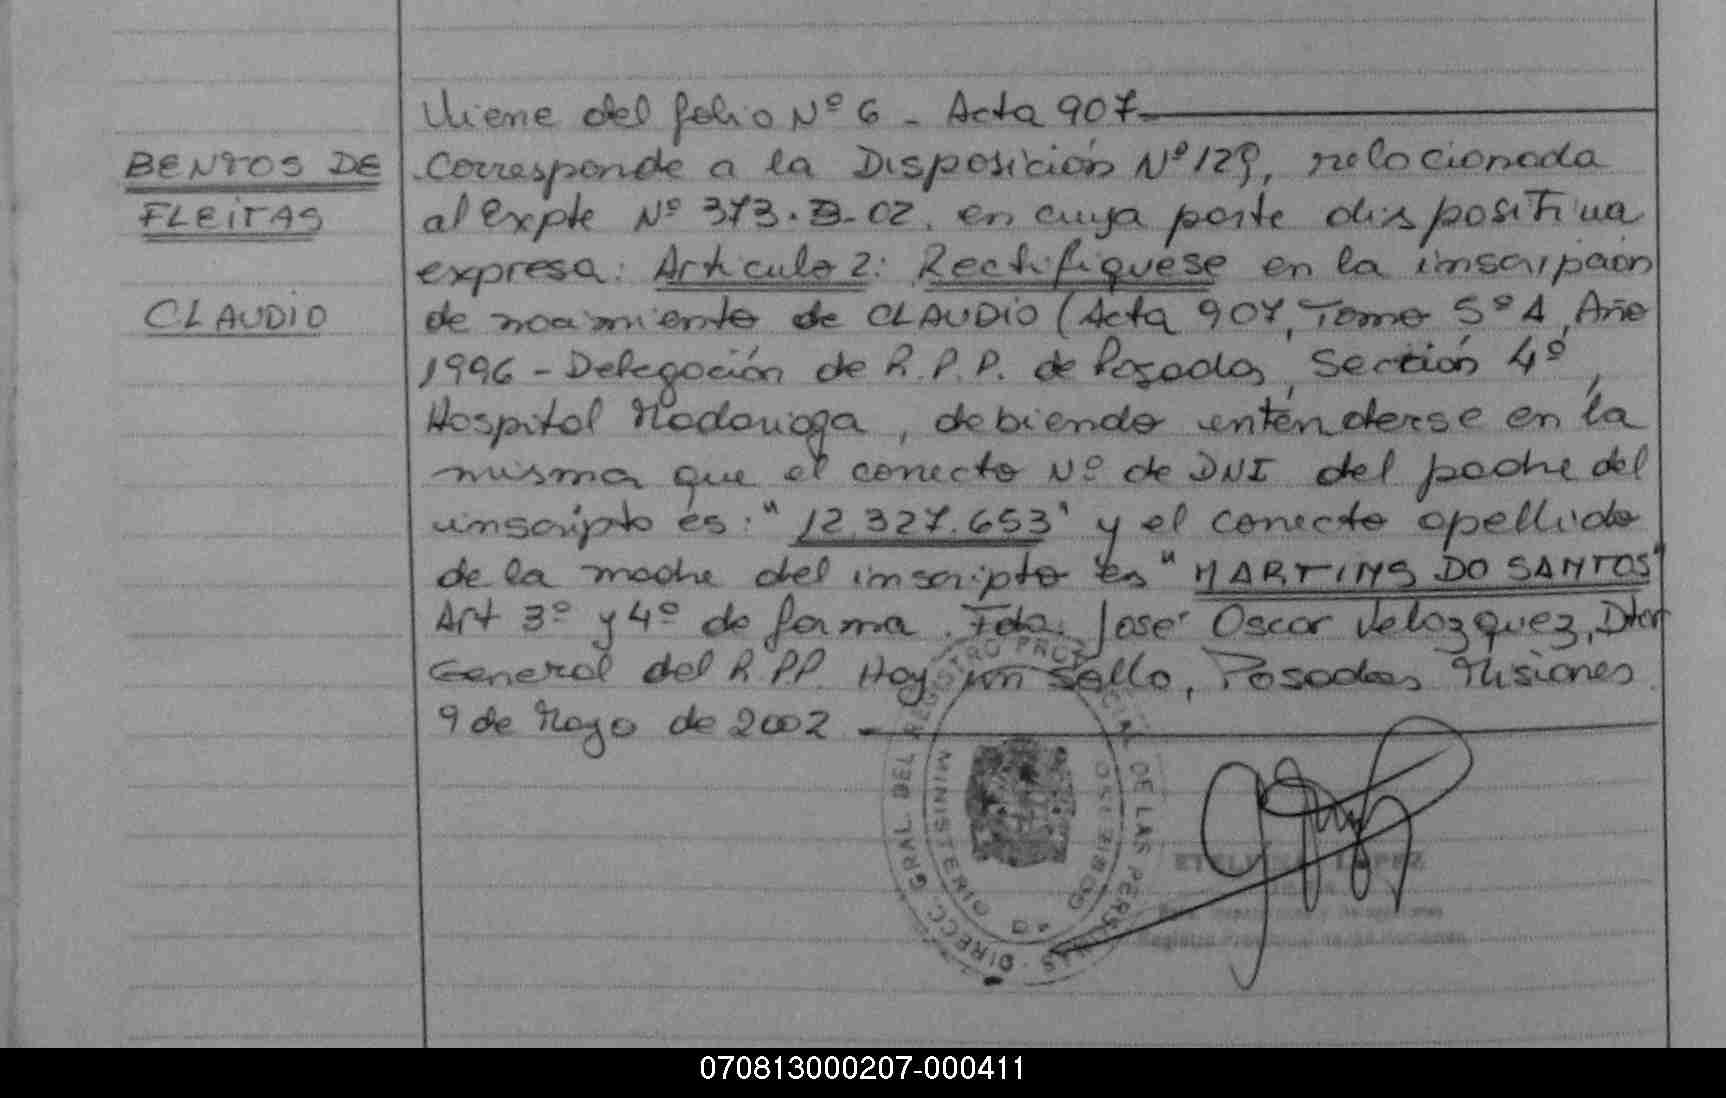 Viene del folio Nº 6 - Acta 907
BENTOS DE
FLEITAS
CLAUDIO
Corresponde a la Disposición Nº 129, relacionada
al Expte Nº 373.B-02. en cuya parte dispositiva
expresa: Articulo 2: Rectifiquese en la inscripción
de nacimiento de CLAUDIO (Acta 907, Tomo 5º A, Año
1996 - Delegación de R.P.P. de Posadas, Sección 4º,
Hospital Madariaga, debiendo entenderse en la
misma que el correcto Nº de DNI del padre del
inscripto es: "12.327.653" y el correcto apellido
de la madre del inscripto es "MARTINS DO SANTOS"
Art 3º y 4º de forma. Fdo. José Oscar Velazquez, Dtor
General del R.PP. Hay un Sello, Posadas Misiones
9 de Mayo de 2002
DIRECC. GRAL. DEL REGISTRO PROVINCIAL DE LAS PERSONAS
MINISTERIO DE GOBIERNO
LOPEZ
070813000207-000411